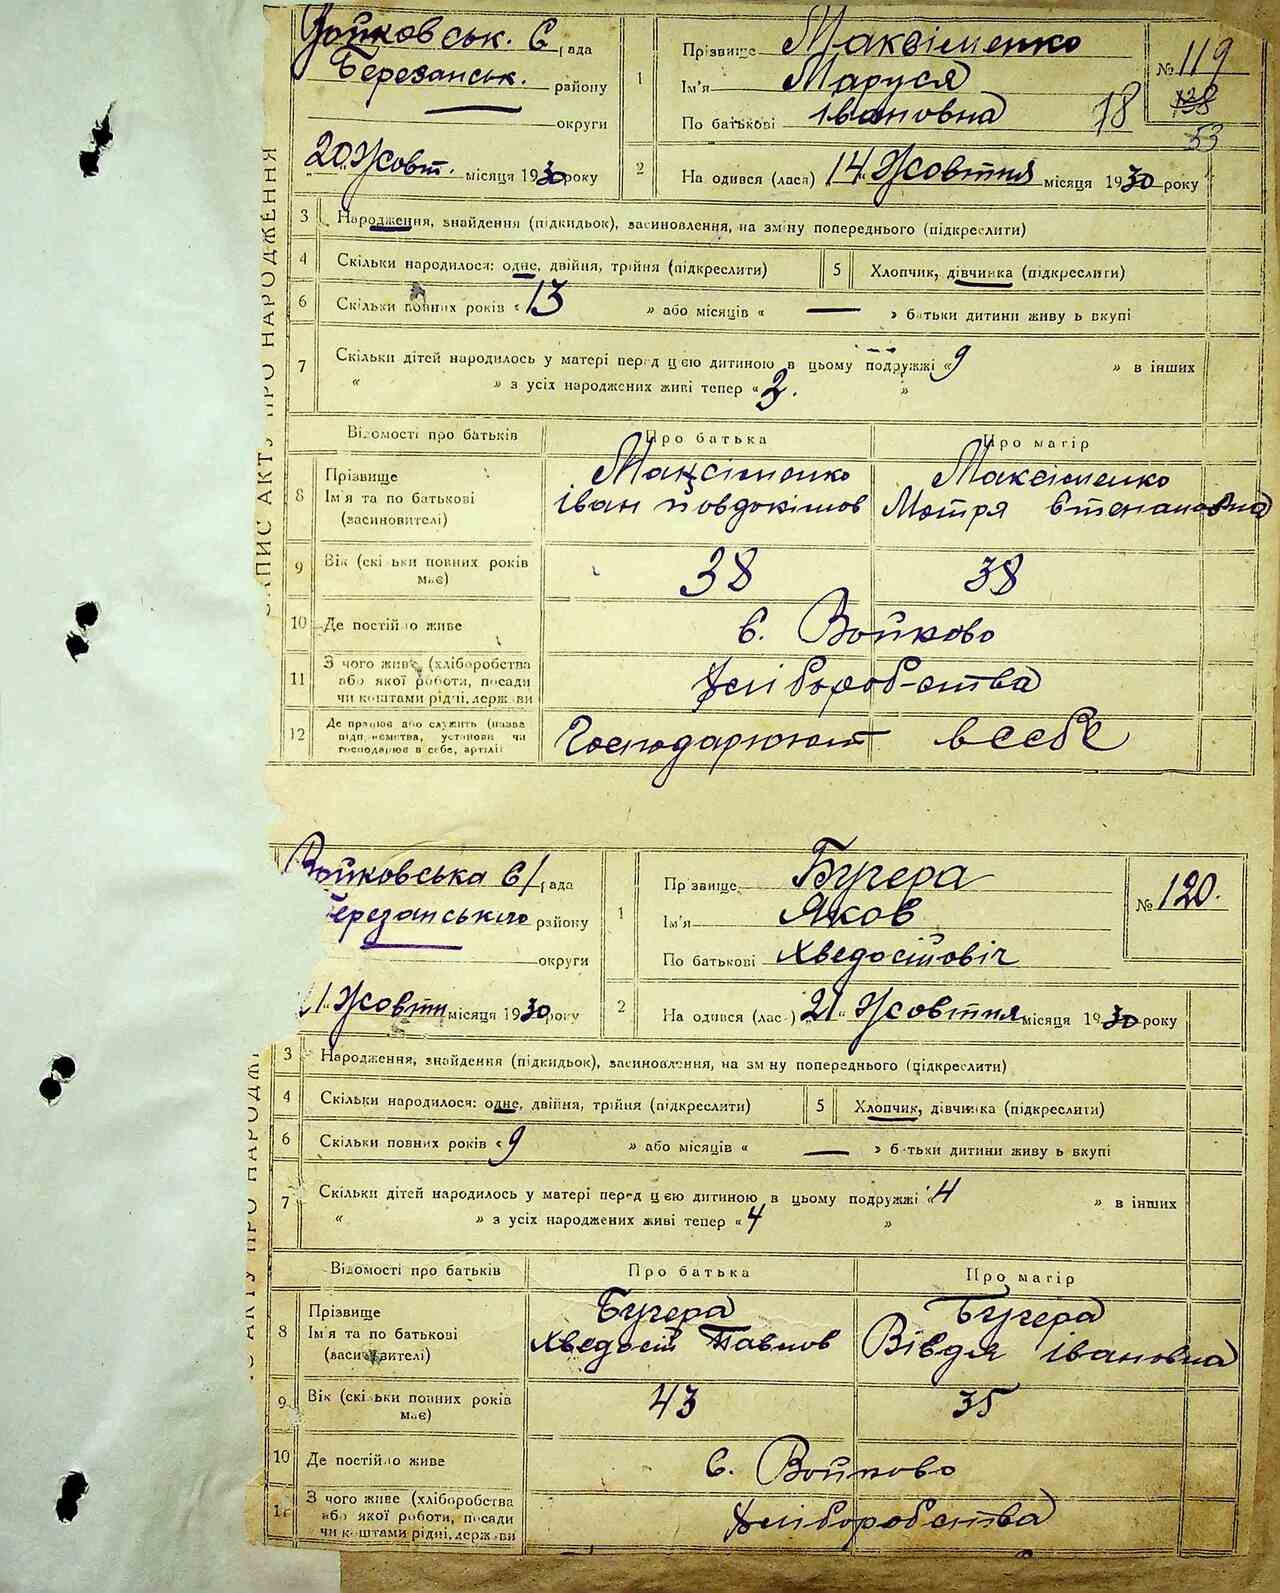 Войковськ. С рада
Березанськ. району
округи
20 Жовт. місяця 1930 року
1 Прізвище Максіменко
Ім'я Маруся
По батькові Івановна 78
№ 119
128
53
2 На одився (лася) 14 Жовтня місяця 1930 року
ЗАПИС АКТУ ПРО НАРОДЖЕННЯ
3 Народження, знайдення (підкидьок), засиновлення, на зміну попереднього (підкреслити)
4 Скільки народилося: одне, двійня, трійня (підкреслити) 5 Хлопчик, дівчинка (підкреслити)
6 Скільки повних років « 13 » або місяців « — » батьки дитини живуть вкупі
7 Скільки дітей народилось у матері перед цією дитиною в цьому подружжі « 9 » в інших
« » з усіх народжених живі тепер « 3. »
Відомості про батьків Про батька Про матір
8 Прізвище Максіменко Максіменко
Ім'я та по батькові Іван Йовдокімов Мотря Степановна
(засиновителі)
9 Вік (скільки повних років має) 38 38
10 Де постійно живе С. Войково
11 З чого живе (хліборобства
або якої роботи, посади
чи коштами рідні, держави Хліборобства
12 Де працює або служить (назва
підприємства, установи чи
господарює в себе, артілі Господарюют в себе
Войковська С/рада
Березанського району
округи
21 Жовтн місяця 1930 року
1 Прізвище Бугера
Ім'я Яков
По батькові Хведосійовіч
№ 120.
2 На одився (лас ) 21 Жовтня місяця 1930 року
АКТУ ПРО НАРОДЖ
3 Народження, знайдення (підкидьок), засиновлення, на зміну попереднього (підкреслити)
4 Скільки народилося: одне, двійня, трійня (підкреслити) 5 Хлопчик, дівчинка (підкреслити)
6 Скільки повних років « 9 » або місяців « — » батьки дитини живуть вкупі
7 Скільки дітей народилось у матері перед цією дитиною в цьому подружжі « 4 » в інших
« » з усіх народжених живі тепер « 4 »
Відомості про батьків Про батька Про матір
8 Прізвище Бугера Бугера
Ім'я та по батькові Хведосій Павлов Вівдя Івановна
(засиновителі)
9 Вік (скільки повних років має) 43 35
10 Де постійно живе С. Войково
11 З чого живе (хліборобства
або якої роботи, посади
чи коштами рідні, держави Хліборобства